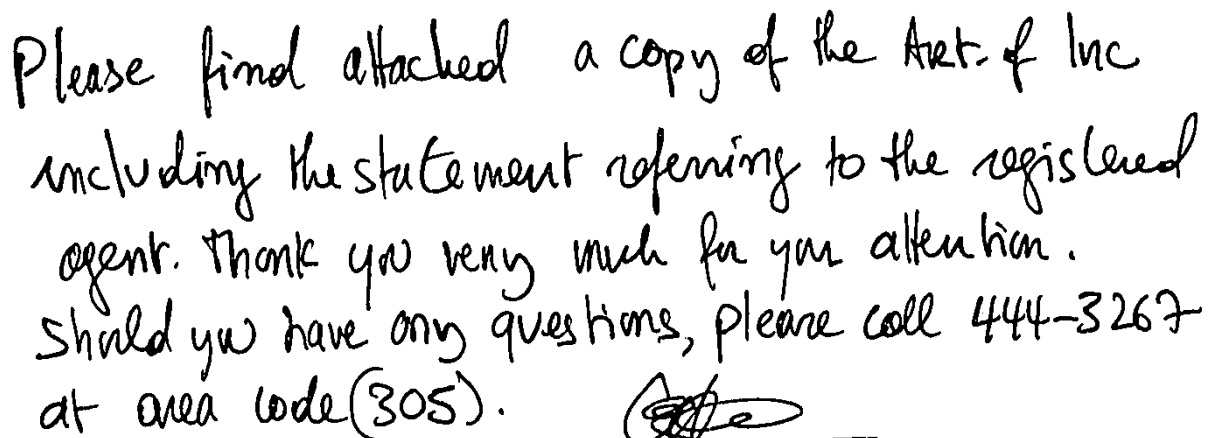 Please find attached a copy of the Art. of Inc
including the statement referring to the registered
agent. Thank you very much for your attention.
Should you have any questions, please call 444-3267
at area code (305).